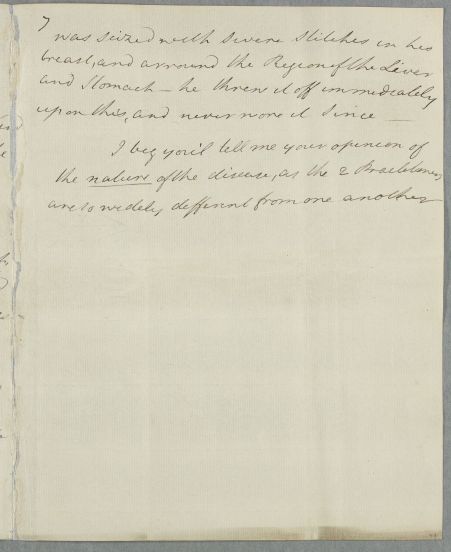 7
was seized with severe stitches in his
breast, and arround the Region of the Liver
and Stomach — he threw it off immediately
upon this, and never wore it since —
I beg you'l tell me your openion of
the nature of the disease, as the 2 Practitioners
are so widely different from one another